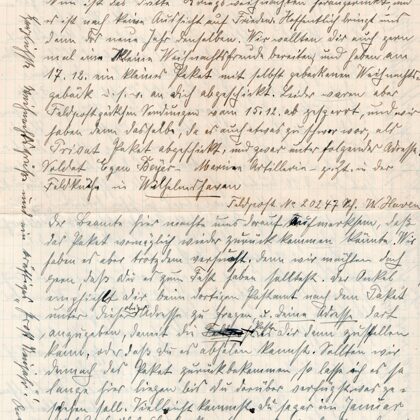 es ist noch keine Aussicht auf Frieden. Hoffentlich bringt uns
denn das neue Jahr denselben. Wir wollten dir auch gern
mal eine kleine Weihnachtsfreude bereiten und haben am
17.12. ein kleines Paket mit selbst gebackenem Weihnachts-
gebäck u.s.w. an dich abgeschickt. Leider waren aber
Feldpostpäckchen Sendungen vom 15.12. ab gesperrt, und wir
haben denn dasselbe, da es auch etwas zu schwer war, als
Privat Paket abgeschickt, und zwar unter folgender Adresse
Soldat Egon Beyer Marine Artillerie in der
Feldküche in Wilhelmshaven
Feldpost Nr. 20247 W'Haven
Der Beamte hier machte uns drauf aufmerksam, daß
das Paket womöglich wieder zurück kommen könnte. Wir
haben es aber trotzdem versucht, denn wir möchten doch
gern, daß du es zum Fest haben solltest. Der Onkel
empfiehlt dir beim dortigen Postamt nach dem Paket
unter dieser Adresse zu fragen u. deine Adresse dort
anzugeben, damit die es dir dann zustellen
kann, oder daß du es abholen kannst. Sollten wir
dennoch das Paket zurückbekommen so lasse ich es so
lange hier liegen bis du darüber verfügst was ge-
schehen soll. Vielleicht kommst du sogar im Januar
Herzlichste Weihnachtsgrüße und ein kräftiges Prost Neujahr!